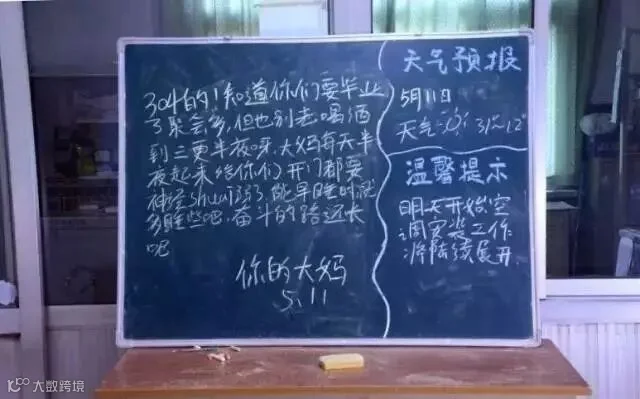 304的!知道你们要毕业
了聚会多,但也别老喝酒
到三更半夜呀.大妈每天半
夜起来给你们开门都要
神经shuai弱了能早睡时就
多睡些吧.奋斗的路还长
呢
你的大妈
5.11
天气预报
5月11日
天气 31°~12°
温馨提示
明天开始空
调安装工作
将陆续展开.
大数跨境